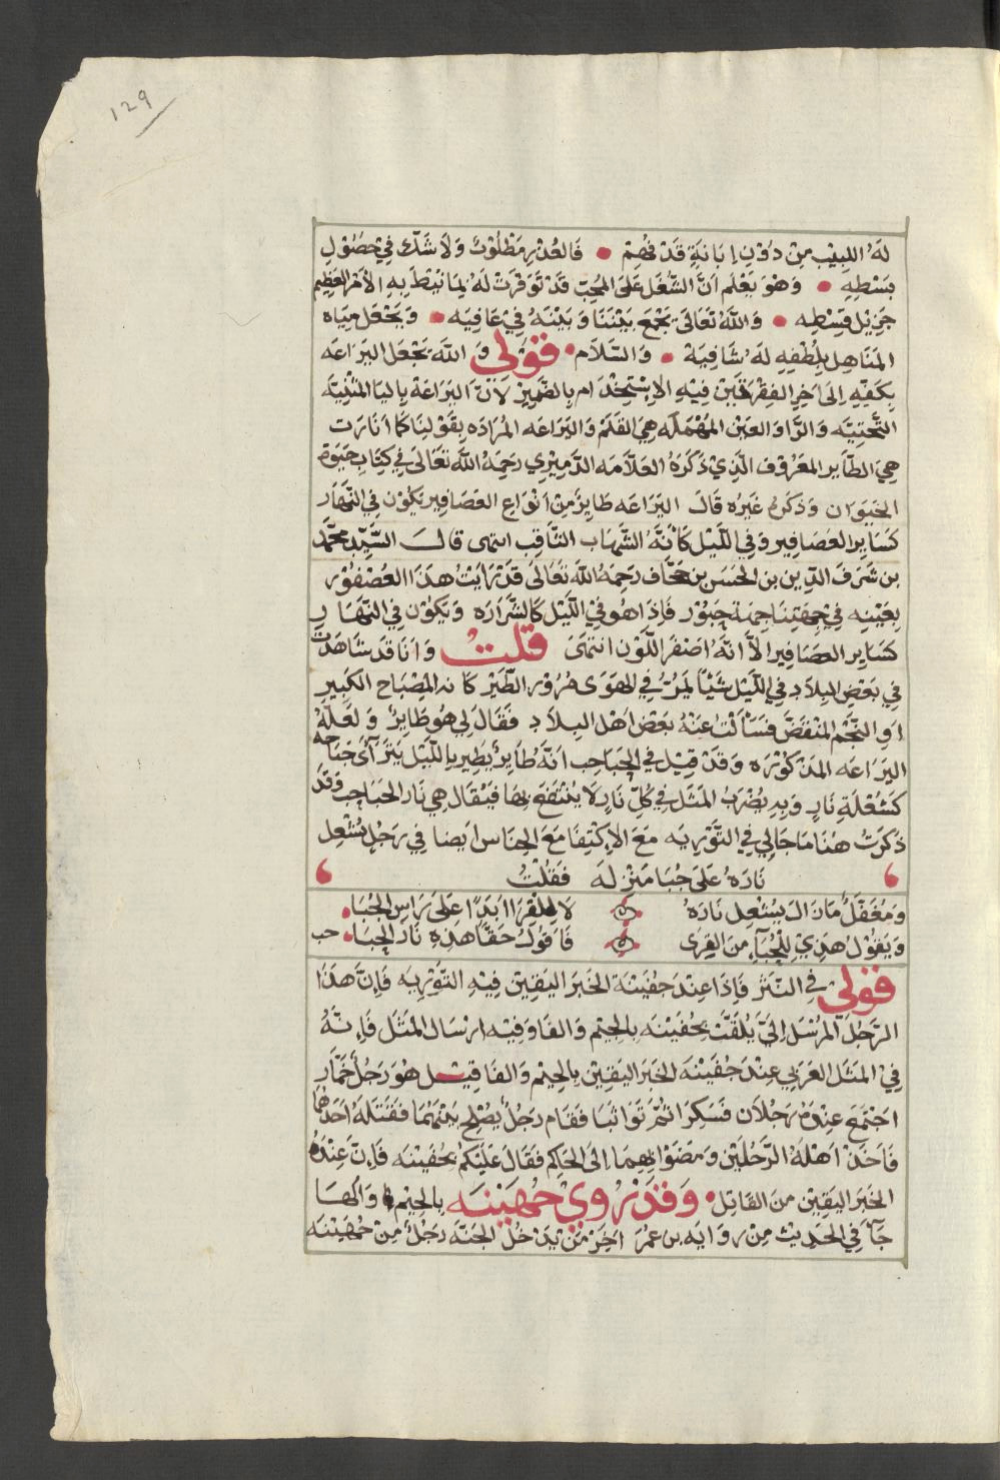 129
لَهُ اللبِيْب مِنْ دُوْنِ اِبَانَةٍ قَدْ فُهِمَ • فَالعُذْر مَطْلُوْبٌ وَلَا شَكَّ فِي حُصُوْلِ
بَسْطِهِ • وَهْوَ يَعْلَم اَنَّ الشُّغْلَ عَلَى المُحِبّ قَدْ تَوَفَّرَتْ لَهُ بِمَا نيطَ بِهِ الأَمْر العَظِيْم
جَزِيْل قِسْطِه • وَاللهُ تَعَالَى يَجْمَع بَيْنَنَا وَبَيْنَهُ فِيْ عَافِيَه • وَيَجْعَل مِيَاه
المَنَاهِل بِلُطْفِهِ لَهُ شَافِيَة • وَالسَّلَام • قَوْلِي وَ اللهُ يَجْعَل اليَرَاعَه
بِكَفِّهِ اِلَى اخِرِ الفِقْرَتَيْن فِيْهِ الاِسْتِخْدَام بِالضَّمِيْر لَأنّ اليَرَاعَة بِاليَا المُثْنَّيَه
التَّحْتِيَّه وَالرَّا وَالعَيْن المُهْمَلَه هِيَ القَلَم وَاليَرَاعَه المُرَادَه بِقَوْلِنَا كَمَا انَارَت
هِيَ الطَّايِر المَعْرُوْف الَّذِيْ ذَكَرَهُ العَلَّامَه الدَّمِيْرِي رَحِمَهُ اللهُ تَعَالَى فِي كِتَابِ حَيَوة
الحَيَوَان وَذَكَرَهُ غَيْرُه قَالَ اليَرَاعَه طَايِرٌ مِنْ اَنْوَاعِ العَصَافِيْر يَكُوْن فِي النَّهَار
كَسَايِر العَصَافِيْر وَفِي اللَّيْل كَأنَّهُ الشِّهَاب الثَّاقِب انتهى قَالَ السَّيِّد مُحَمَّد
بن شَرَفِ الدِّيْن بن الحَسَن بن جَحَّاف رَحِمَهُ اللهُ تَعَالَى قَدْ رَاَيْتُ هَذَا العُصْفُوْر
بِعَيْنِه فِي جِهَتِنَا جِهَة حَبُوْر فَإِذَا هُو فِي اللَّيْل كَالشَّرَارَه وَيَكُوْن فِي النَّهَارِ
كَسَايِر العَصَافِيْر الاَّ انَّهُ اصْفَر اللَّوْن انتَهَى قُلْتُ وَانَا قَدْ شَاهَدْتُ
فِي بَعْضِ البِلَادِ فِي اللَّيْل شَيْئًا يَمُرُّ فِي الهَوَى مُرُوْر الطَّيْر كَانه المِصْبَاح الكَبِيْر
اوِ النَّجْم المُنْقَضّ فَسَأَلْتُ عَنْهُ بَعْضَ اَهْل البِلَاد فَقَالَ لِي هُو طَايِرٌ وَلَعَلَّهُ
اليَرَاعَه المَذْكُوْرَه وَقَدْ قِيْلَ فِي الحُبَاحِب انَّهُ طَايِرٌ يَطِيْر بِاللَّيْل يَتَرَآى جَنَاحه
كَشُعْلَةِ نَارٍ وَبِهِ يُضْرَبُ المَثَل فِي كُلِّ نَارٍ لَا يُنْتَفَع بِهَا فَيُقَال هِيَ نَار الحُبَاحِب وَقَدْ
ذَكَرْتُ هُنَا مَا جَا لِي فِي التَّوْرِيَه مَعَ الاِكْتِفَا مَعَ الجِنَاس ايضا فِي رَجُلٍ يُشْعِل
نَارَهُ عَلَى حُبَا مَنْزِلَه فَقُلْتُ
وَمُغَفَّلٌ مَازَالَ يَشْعِل نَارَهُ لَا لِلقِرَا اَبَدًا عَلَى رَاسِ الحُبَا
وَيَقُوْلُ هَذِيْ لِلْحُبَآءِ مِنَ القِرَى فَأَقُوْلُ حَقًّا هَذِهِ نَارُ الحُبَا حب
قَوْلِي فِي النَّثْر فَإِذَا عِنْدَ جُفَيْنَة الخَبَر اليَقِيْن فِيْهِ التَّوْرِيَه فَاِنَّ هَذَا
الرَّجُلَ المُرْسَل اِلَيَّ يُلَقَّبُ بِجُفَيْنَه بِالجِيْم وَالفَا وَفِيْه ارْسَال المَثَل فَاِنَّهُ
فِيْ المَثَل العَرَبِي عِنْدَ جُفَيْنَه الخَبَر اليَقِيْن بِالجِيْم وَالفَا قِيْل هُوَ رَجُلٌ خَمَّار
اجْتَمَعَ عِنْدَهُ رَجُلَان فَسَكِرَا ثُمَّ تَوَاثَبَا فَقَام رَجُلٌ يُصْلِح بَيْنَهُمَا فَقَتَلَهُ اَحَدُهُمَا
فَاَخَذَ اَهْلُهُ الرَّجُلَيْن وَمَضَوْا بِهِمَا اِلَى الحَاكِم فَقَالَ عَلَيْكُمْ بِجُفَيْنَه فَإِنّ عِنْدَهُ
الخَبَر اليَقِيْن مِنَ القَاتِل • وَقَدْ رُوِيْ جُهَيْنَه بِالجِيْم وَالهَا
جَآءَ فِي الحَدِيْث مِنْ رِوَايَه بن عُمَرَ اخِر مَنْ يَدْخُل الجَنَّه رَجُلٌ مِنْ جُهَيْنَه